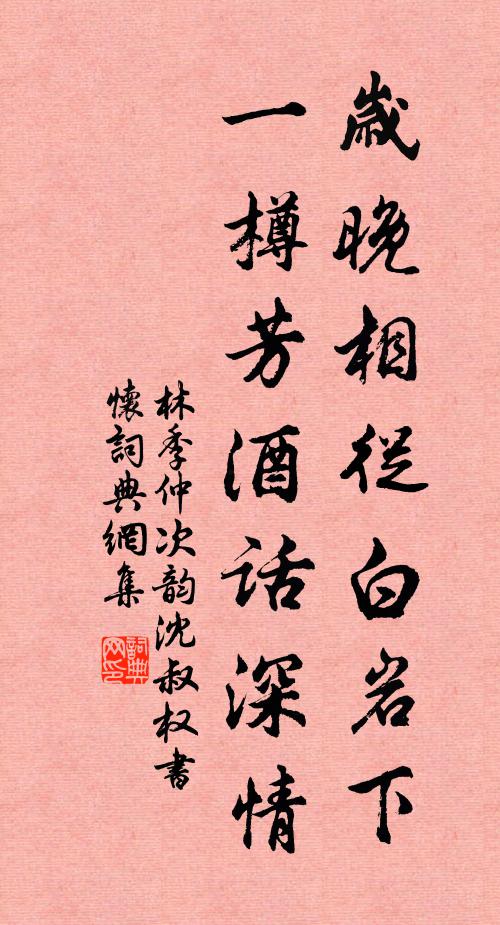 歲晚相從白岩下
一樽芳酒話深情
林季仲次韵沈叔权書
懷詞典網集
詞典网印